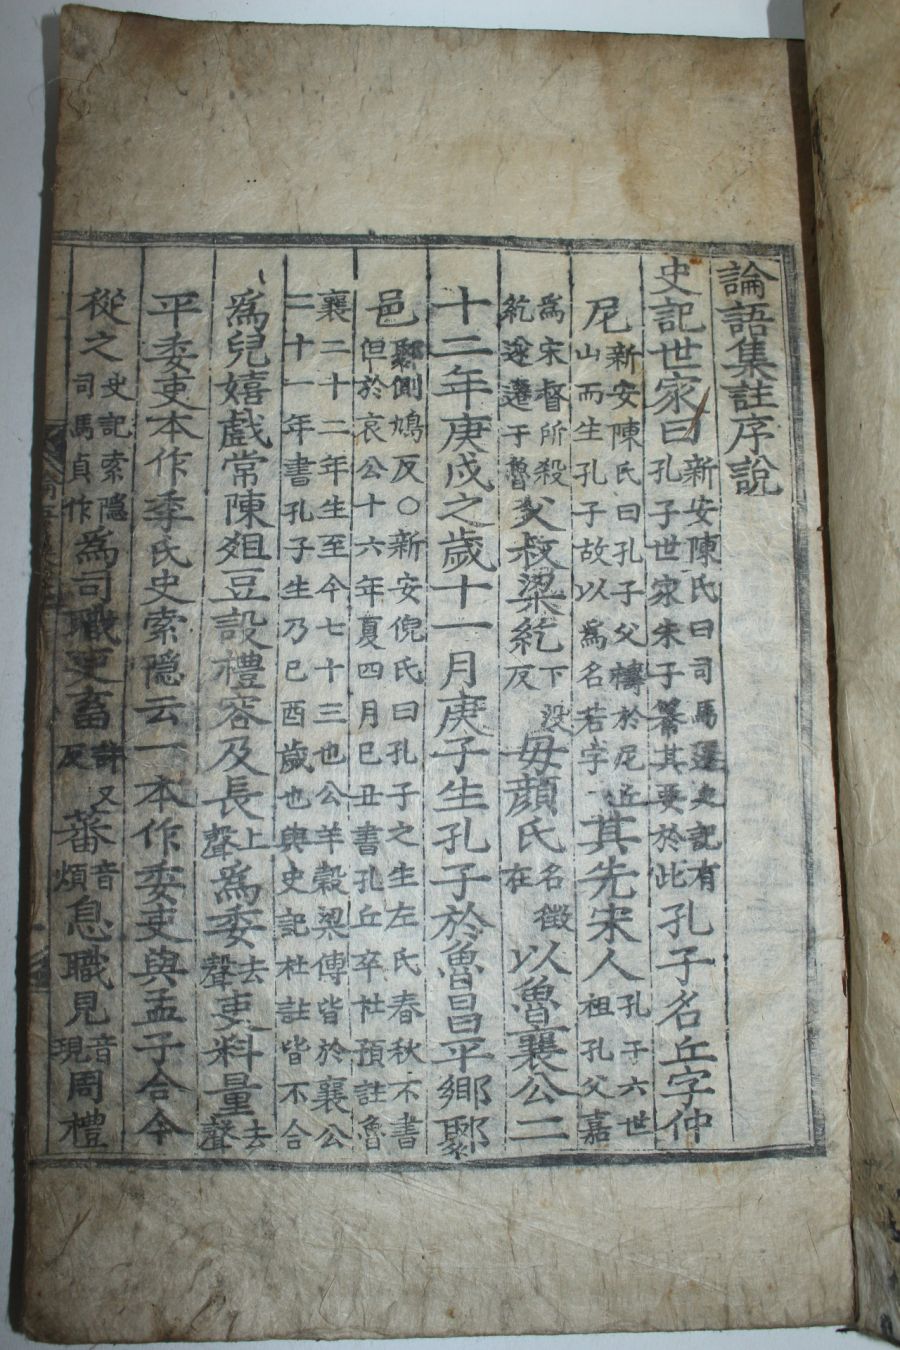 論語集註序說
史記世家曰新安陳氏曰司馬遷史記有孔子世家朱子纂其要於此孔子名丘字仲
尼新安陳氏曰孔子父禱於尼丘山而生孔子故以爲名若字其先宋人孔子六世祖孔父嘉
爲宋督所殺紇遂遷于魯父叔梁紇下沒反母顏氏名徵在以魯襄公二
十二年庚戌之歲十一月庚子生孔子於魯昌平鄕鄹
邑鄹側鳩反○新安倪氏曰孔子之生左氏春秋不書但於哀公十六年夏四月己丑書孔丘卒杜預註魯
襄二十二年生至今七十三也公羊穀梁傳皆於襄公二十一年書孔子生乃己酉歲也與史記杜註皆不合
爲兒嬉戲常陳俎豆設禮容及長上聲爲委去聲吏料量去聲
平委吏本作季氏史索隱云一本作委吏與孟子合今
從之史記索隱司馬貞作爲司職吏畜許又反蕃音煩息職見音現周禮